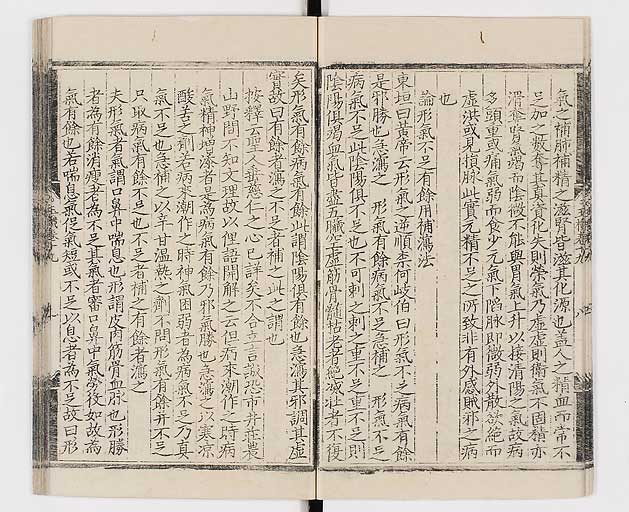 氣之補肺補精之滋腎皆滋其化源也盖人之精血而常不
足加之數奪其真資化失則榮氣乃虛虛則衛氣不固精亦
滑奪腎氣竭而陰微不能與胃氣上升以接清陽之氣故病
多頭重或痛氣弱而食少元氣下陷脉即微弱外散欲絶而
虛洪或見損脉此實元精不足之所致非有外感賊邪之病
也
論形氣不足有餘用補瀉法
東垣曰黃帝云形氣之逆順柰何岐伯曰形氣不足病氣有餘
是邪勝也急瀉之 形氣有餘病氣不足急補之 形氣不足
病氣不足此陰陽俱不足也不可刺之刺之重不足重不足則
陰陽俱竭血氣皆盡五臟空虛筋骨髓枯老者絶滅壯者不復
矣形氣有餘病氣有餘此謂陰陽俱有餘也急瀉其邪調其虛
實故曰有餘者瀉之不足者補之此之謂也
按釋云聖人垂慈仁之心已詳矣不合立言誠恐市井莊農
山野間不知文理故以俚語開解之云但病來潮作之時病
氣精神增添者是為病氣有餘乃邪氣勝也急瀉之以寒凉
酸苦之劑若病來潮作之時神氣困弱者為病氣不足乃真
氣不足也急補之以辛甘溫熱之劑不問形氣有餘并不足
只取病氣有餘不足也不足者補之有餘者瀉之
夫形氣者氣謂口鼻中喘息也形謂皮肉筋骨血脉也形勝
者為有餘清瘦者為不足其氣者審口鼻中氣勞役如故為
氣有餘也若喘息氣促氣短或不足以息者為不足故曰形